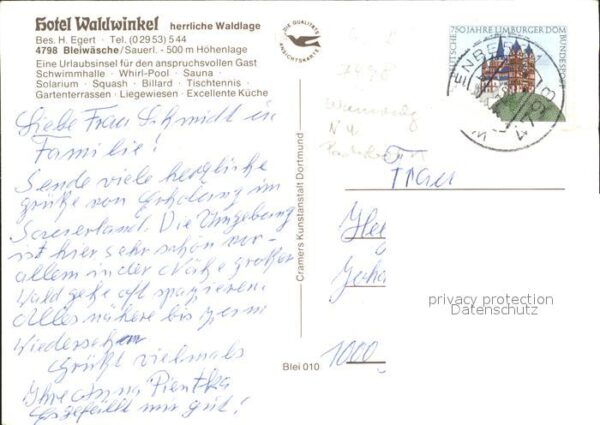 Hotel Waldwinkel herrliche Waldlage
Bes. H. Egert · Tel. (02953) 544
4798 Bleiwäsche/Sauerl. - 500 m Höhenlage
Eine Urlaubsinsel für den anspruchsvollen Gast
Schwimmhalle · Whirl-Pool · Sauna ·
Solarium · Squash · Billard · Tischtennis ·
Gartenterrassen · Liegewiesen · Excellente Küche
DIE QUALITÄTS
ANSICHTSKARTE
750 JAHRE LIMBURGER DOM
DEUTSCHE BUNDESPOST
Liebe Frau Schmidt in
Familie!
Sende viele herzliche
grüße von Erholung im
Sauerland. Die Umgebung
ist hier sehr schön vor-
allem in der Nähe großer
Wald gehe oft spazieren.
Alles nähere bis zum
Wiedersehen
Grüßt vielmals
Ihre Anna Pientka
Es gefällt mir gut!
Cramers Kunstanstalt Dortmund
Blei 010
Frau
1000
privacy protection
Datenschutz